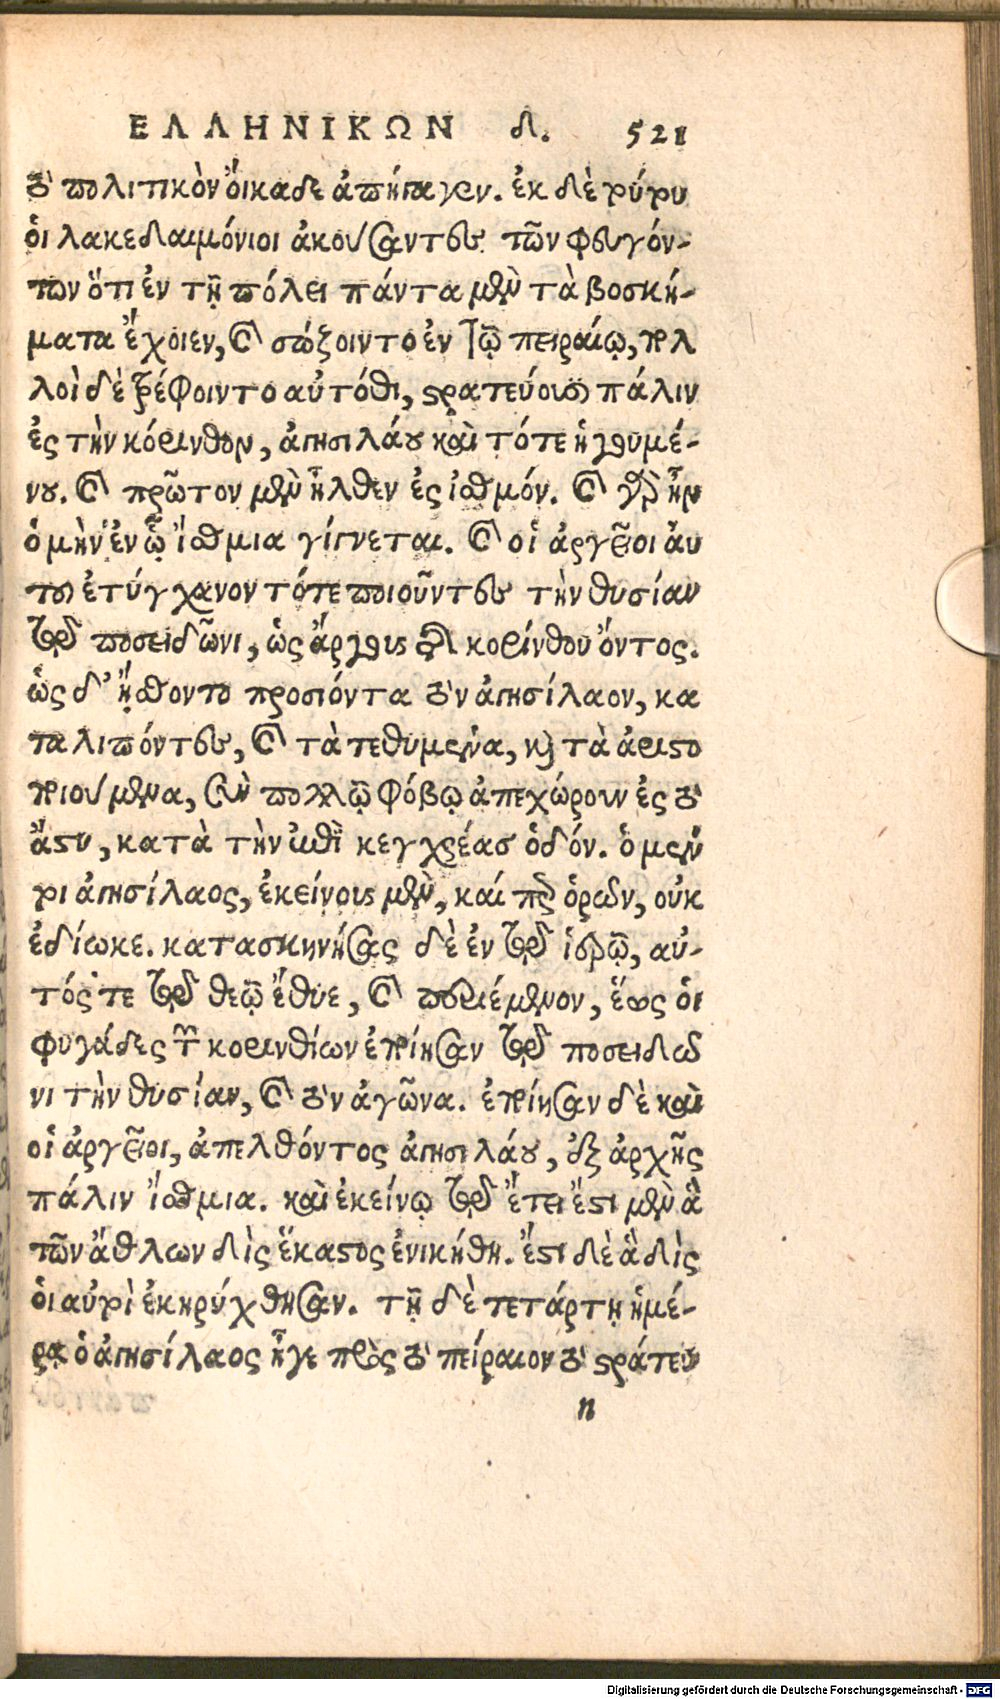 ΕΛΛΗΝΙΚΩΝ δ. 521
τὸ πολιτικὸν ὄικαδε ἀπήπαγεν. ἐκ δὲ τούτου
ὁι λακεδαιμόνιοι ἀκούσαντες τῶν φευγόν-
των ὅτι ἐν τῇ πόλει πάντα μὲν τὰ βοσκή-
ματα ἔχοιεν, καὶ σώζοιντο ἐν τῷ πειραίῳ, πολ
λοὶ δὲ τρέφοιντο αὐτόθι, στρατεύουσι πάλιν
ἐς τὴν κόρινθον, ἀγησιλάου καὶ τότε ἡγουμέ-
νου. καὶ πρῶτον μὲν ἦλθεν ἐς ἰσθμόν. καὶ γὰρ ἦν
ὁ μὴν ἐν ᾧ ἴσθμια γίγνεται. καὶ οἱ ἀργεῖοι ἀυ
τοῦ ἐτύγχανον τότε ποιοῦντες τὴν θυσίαν
τῷ ποσειδῶνι, ὡς ἄργους τῆς κορίνθου ὄντος.
ὡς δ' ᾔσθοντο προσιόντα τὸν ἀγησίλαον, κα
ταλιπόντες, καὶ τὰ τεθυμένα, καὶ τὰ ἀριστο
ποιούμενα, σὺν πολλῷ φόβῳ ἀπεχώρουν ἐς τὸ
ἄστυ, κατὰ τὴν ἐπὶ κεγχρέασ ὁδόν. ὁ μέν
τοι ἀγησίλαος, ἐκείνους μὲν, καίπερ ὁρῶν, οὐκ
ἐδίωκε. κατασκηνήσας δὲ ἐν τῷ ἱερῷ, αὐ-
τός τε τῷ θεῷ ἔθυε, καὶ περιέμενον, ἕως ὁι
φυγάδες τῶν κορινθίων ἐποίησαν τῷ ποσειδῶ
νι τὴν θυσίαν, καὶ τὸν ἀγῶνα. ἐποίησαν δὲ καὶ
οἱ ἀργεῖοι, ἀπελθόντος ἀγησιλάου, ἐξ ἀρχῆς
πάλιν ἴσθμια. καὶ ἐκείνῳ τῷ ἔτει ἔστι μὲν ἃ
τῶν ἄθλων δὶς ἕκαστος ἐνικήθη. ἔστι δὲ ἃ δὶς
ὁι αὐτοὶ ἐκηρύχθησαν. τῇ δὲ τετάρτῃ ἡμέ-
ρᾳ ὁ ἀγησίλαος ἦγε πρὸς τὸ πείραιον τὸ στράτευ
n
Digitalisierung gefördert durch die Deutsche Forschungsgemeinschaft - DFG